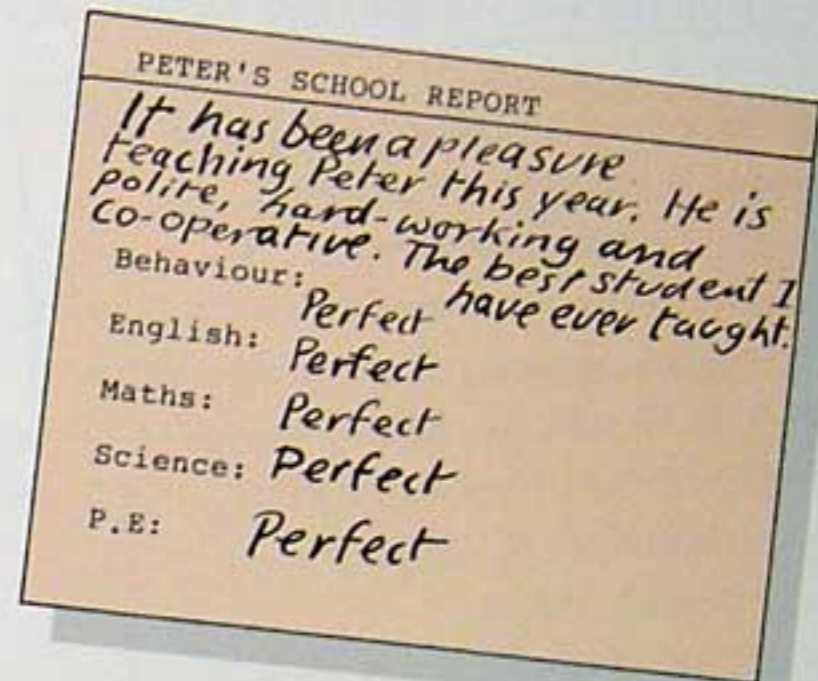 PETER'S SCHOOL REPORT
It has been a pleasure
teaching Peter this year. He is
polite, hard-working and
co-operative. The best student I
have ever taught.
Behaviour: Perfect
English: Perfect
Maths: Perfect
Science: Perfect
P.E: Perfect